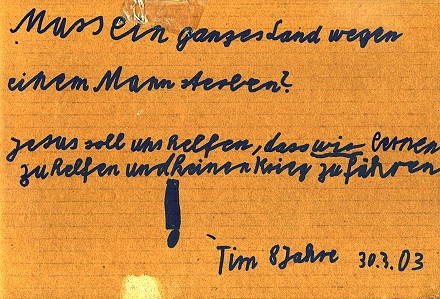 Muss ein ganzes Land wegen
einem Mann sterben?
Jesus soll uns helfen, dass wir lernen
zu helfen und keinen Krieg zu führen
!
Tim 8 Jahre 30.3.03